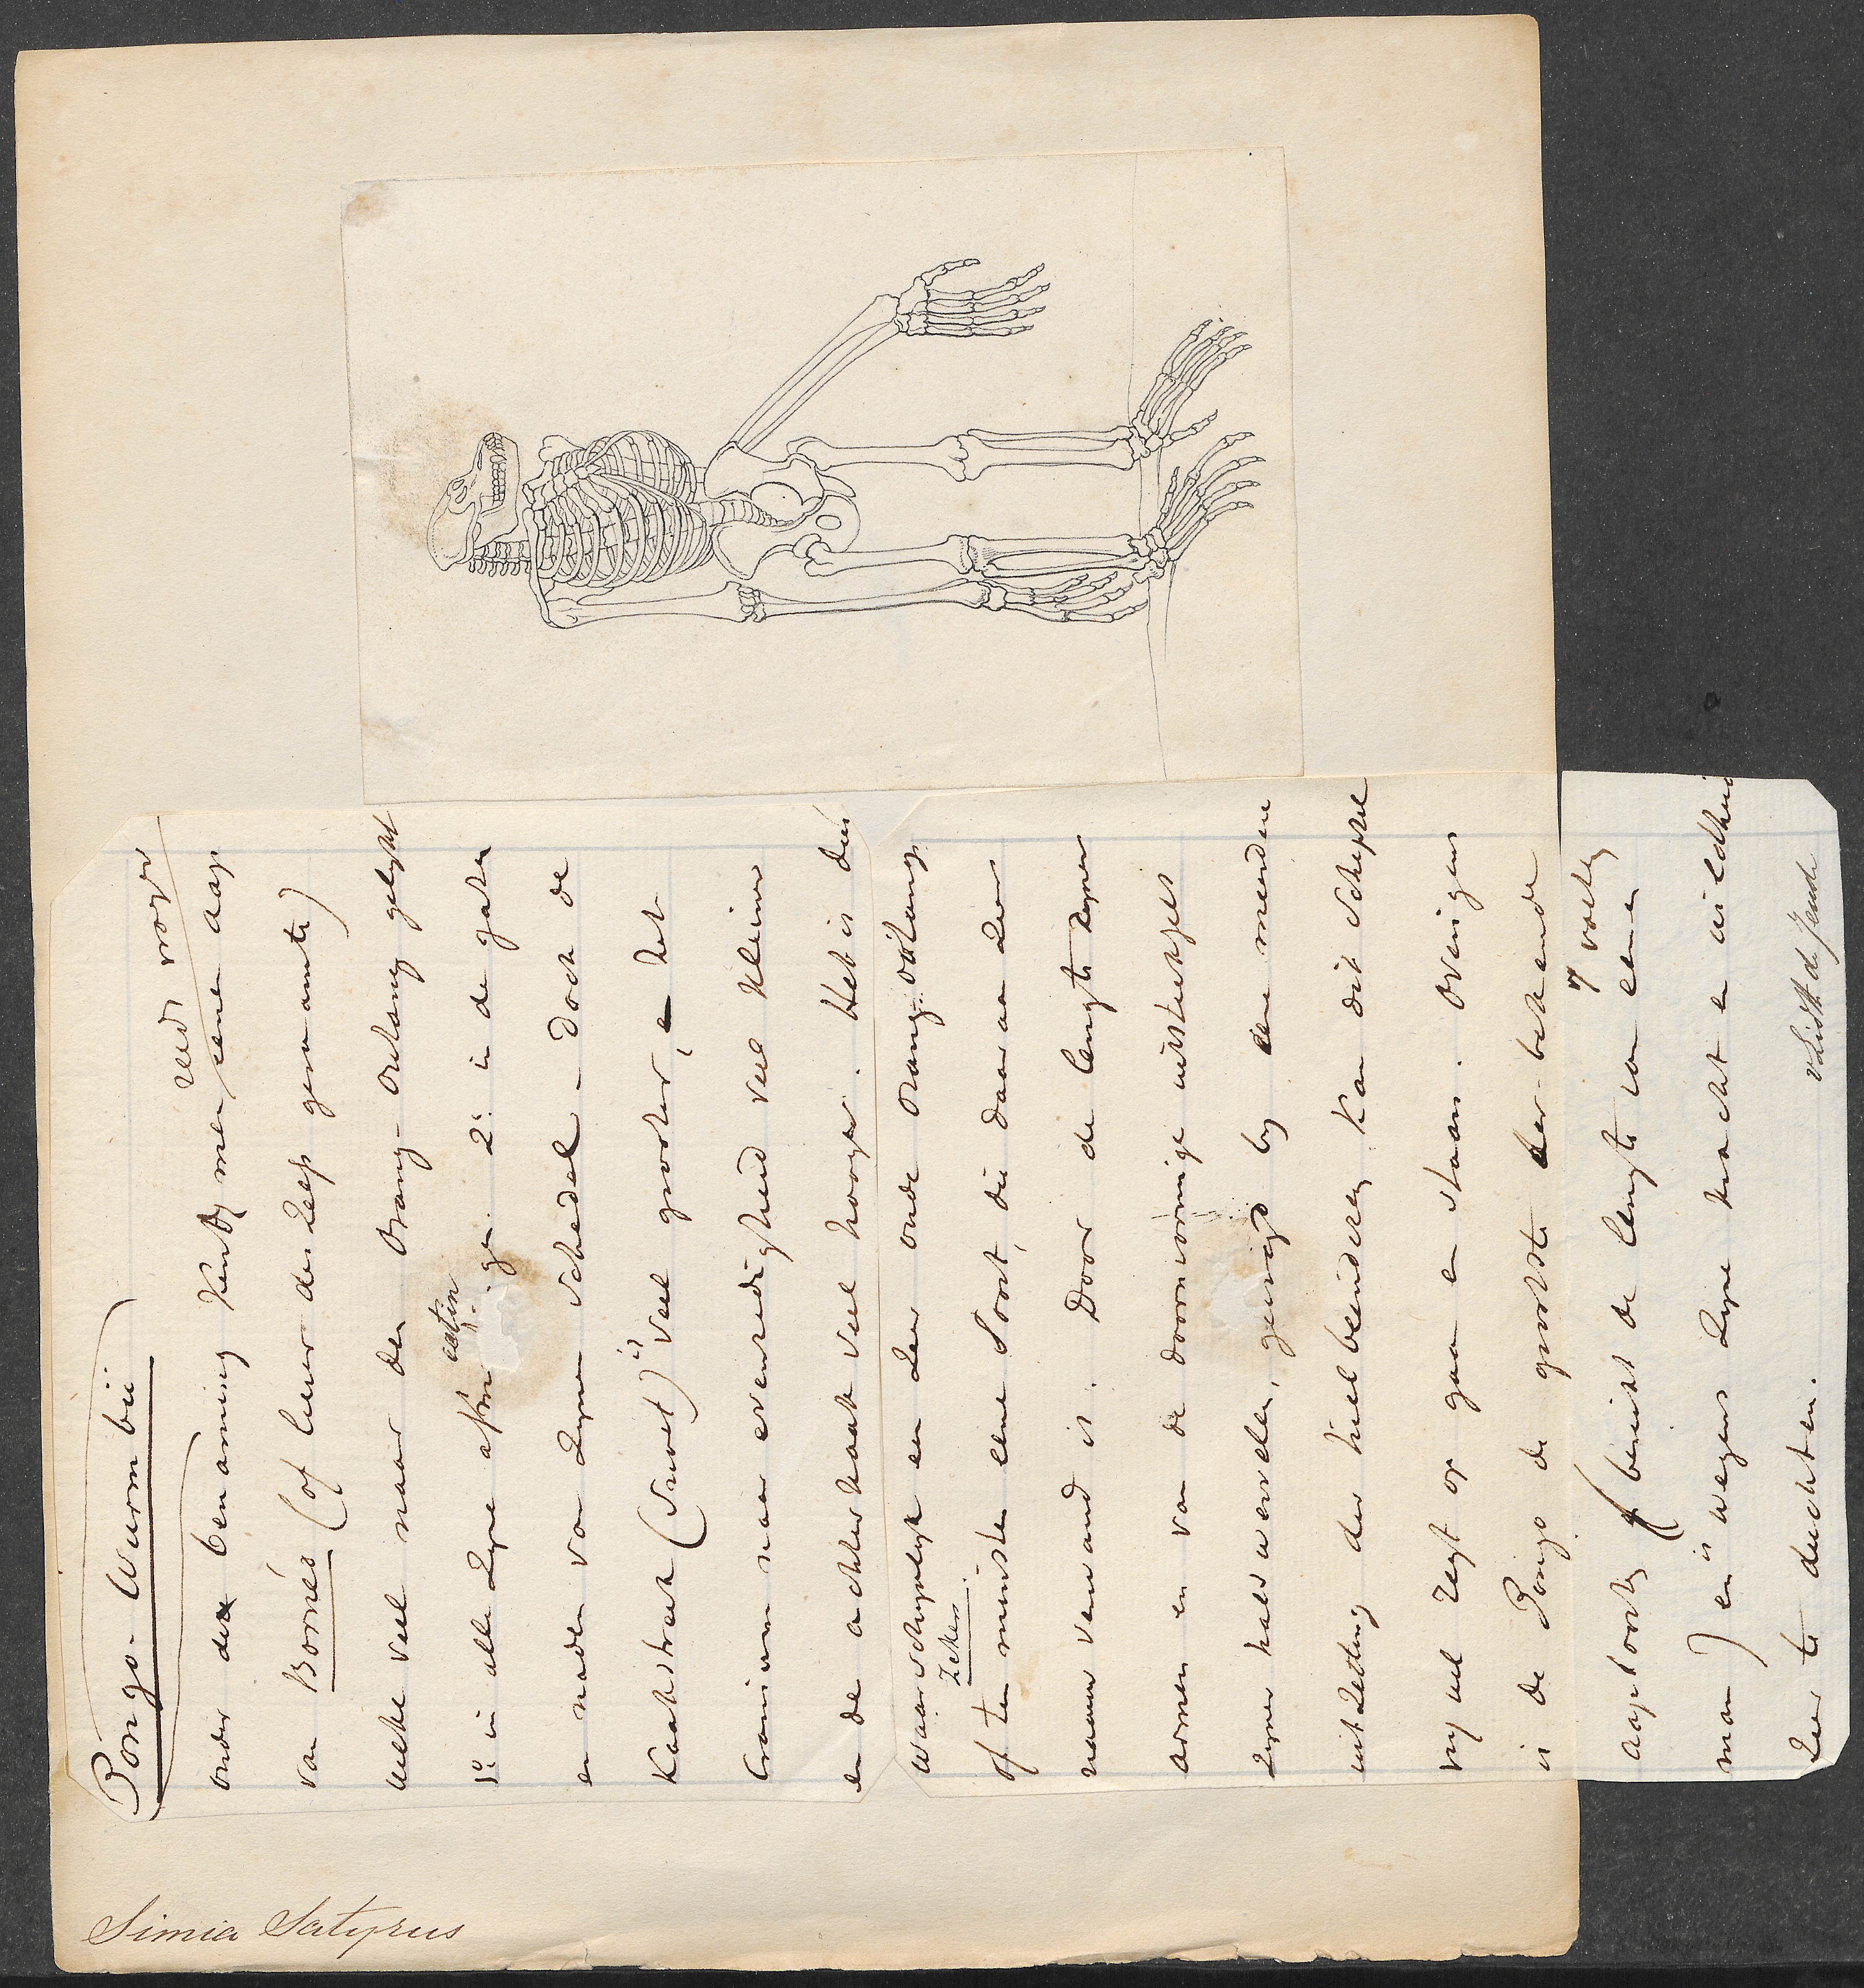 Pongo-Wurmbii
onder de benaming kent men eenen aap
van Borneo (of liever des zelfs geraamte)
welke veel naar den Orang-Outang gelijkt
1º in alle zyne afm 2º in de gaten
en naden van zynen schedel - doch de
Kaakstreek (snuet) is veel grooter, en het
Cranium naar evenredigheid veel kleiner
en de achterkaak veel hooger. Het is dus
waarschynlyk een zeer oude Orang-outang
Zeker
of ten minsten eene Soort, die daar aan zeer
naauw verwand is. Door de lengte zyner
armen en van de doornvormige uitsteeksels
zyner halswervelen, gevoegd by eene meerdere
uitzetting der hielbeenderen, kan dit schepsel
vry wel regt op gaan en staan. Overigens
is de Pongo de grootste der bekende
aapsoorten (bereikt de lengte van eenen
man) en is wegens zyne kracht en wildheid
zeer te duchten.
Simia Satyrus